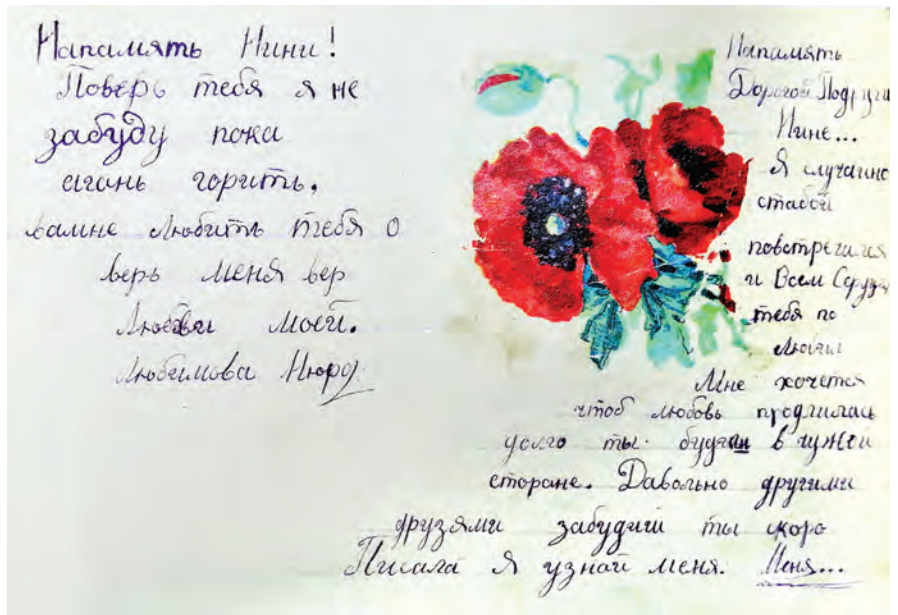 Напамять Нини!
Поверь тебя я не
забуду пока
агань горить,
вамне Любить тебя о
верь меня вер
Любви моей.
Любимова Нюра
Напамять
Дорогой Подруги
Нине...
Я случаино
стабой
повстречался
и Всем Серуде
тебя по
Любил
Мне хочется
чтоб любовь продлилась
долго ты. будеш в чужой
сторане. Давольно другими
друзями забудиш ты скоро
Писала Я узнай меня. Меня...